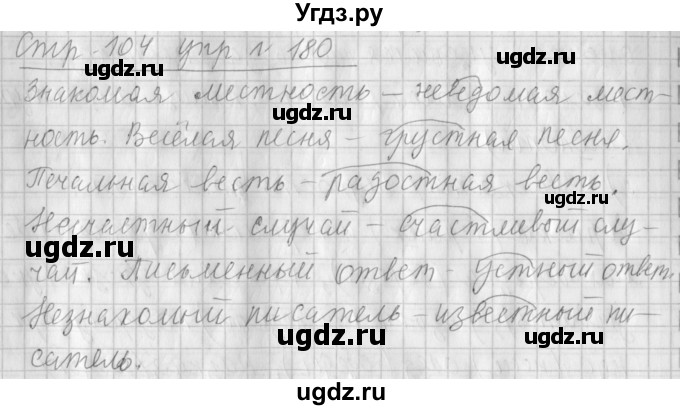 Угдз.ру
Стр 104 упр № 180
Знакомая местность – неведомая мест-
ность. Весёлая песня – грустная песня.
Печальная весть – радостная весть.
Несчастный случай – счастливый слу-
чай. Письменный ответ – устный ответ.
Незнакомый писатель – известный пи-
сатель.
ugdz.ru
ugdz.ru
ugdz.ru
ugdz.ru
ugdz.ru
ugdz.ru
ugdz.ru
ugdz.ru
ugdz.ru
ugdz.ru
ugdz.ru